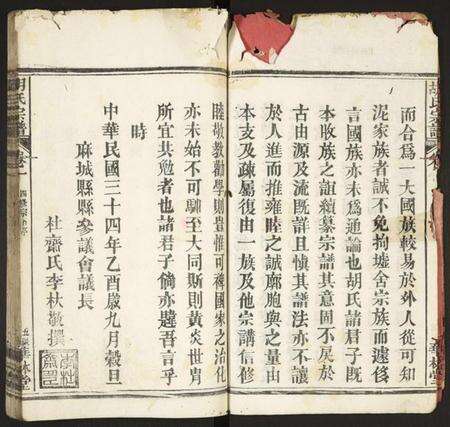 胡氏宗譜
而合爲一大國族較易於外人從可知
泥家族者誠不免拘墟舍宗族而遽侈
言國族亦未爲通論也胡氏諸君子旣
本收族之誼續纂宗譜其意固不戾於
古由源及流旣詳且愼其譜法亦不讓
於人進而推雍睦之誠廓胞與之量由
本支及疎屬復由一族及他宗講信修
睦敬教勸學則豈惟可裨國家之治化
亦未始不可馴至大同斯則黃炎世冑
所宜共勉者也諸君子倘亦韙吾言乎
時
中華民國三十四年乙酉歲九月穀旦
麻城縣縣參議會議長
杜齋氏李杕敬撰
胡氏宗譜
卷一